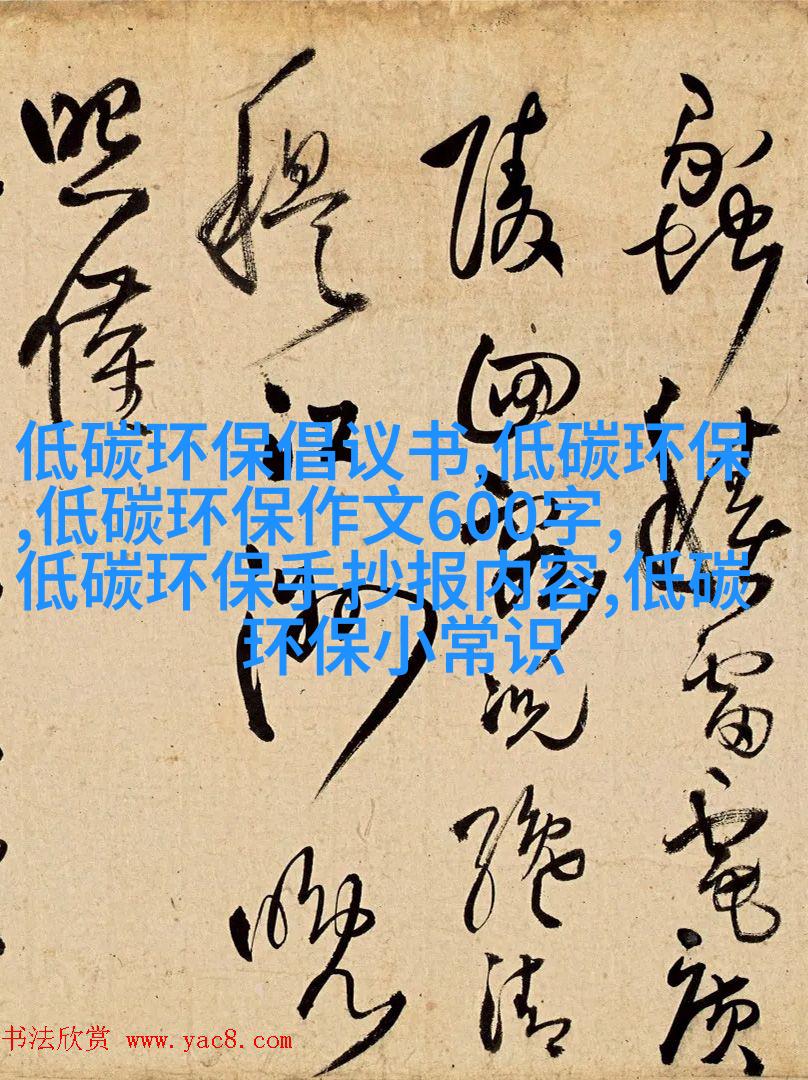 雷電廣
陵況絶清
穩江湖晚
照
低碳环保倡议书,低碳环保
,低碳环保作文600字,
低碳环保手抄报内容,低碳
环保小常识
书法欣赏 www.yac8.com